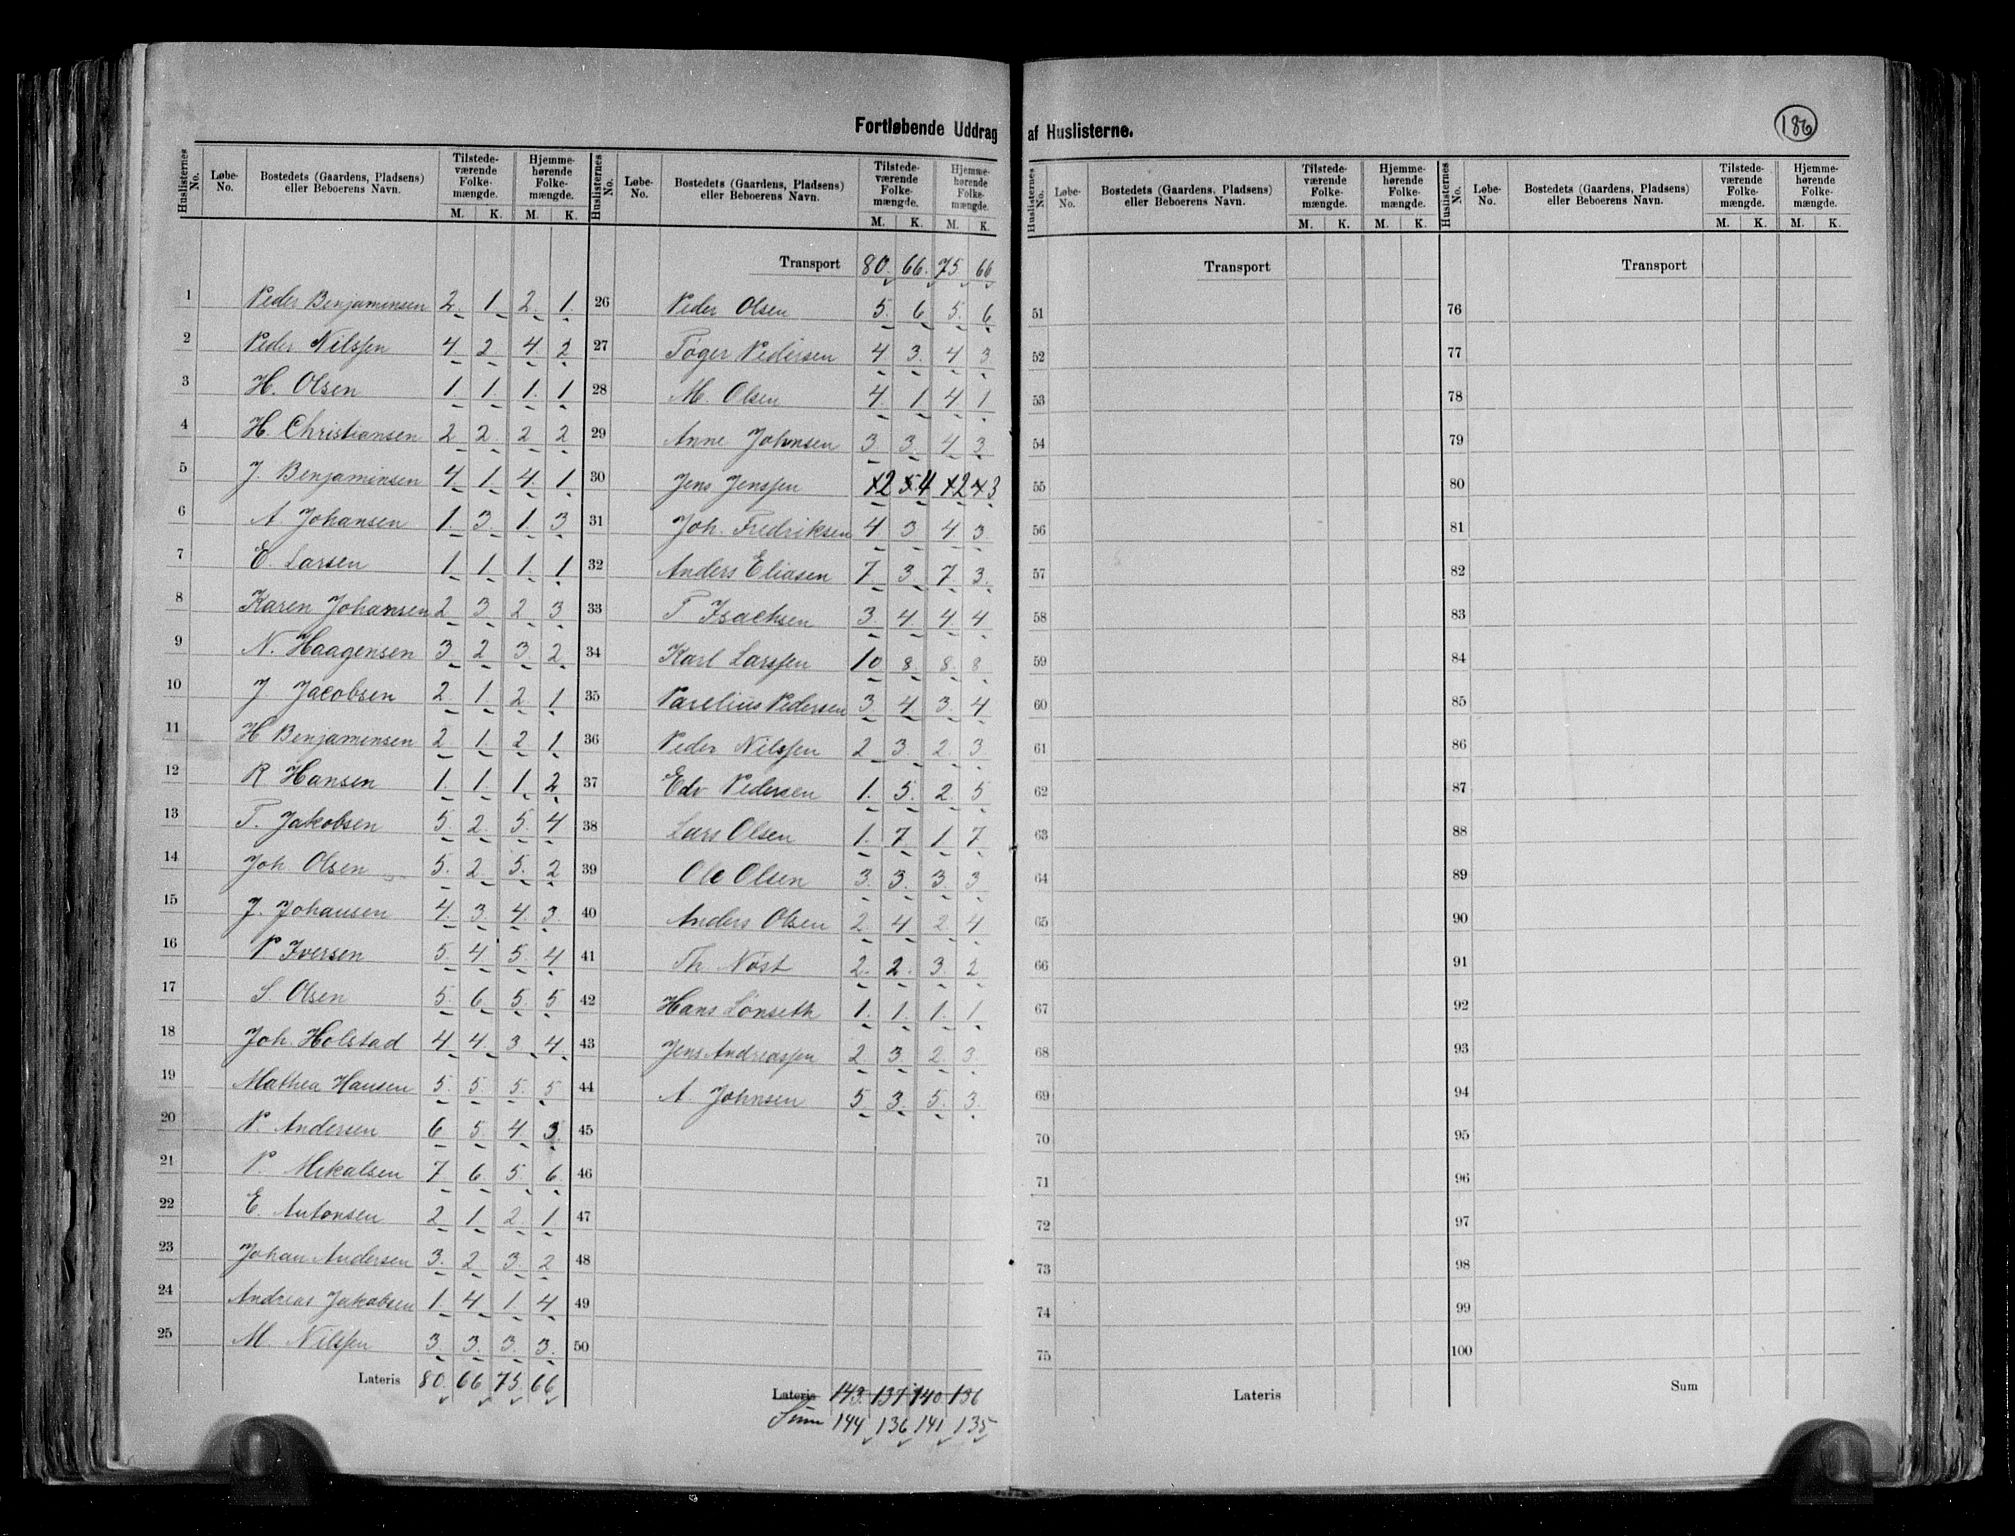 Fortløbende Uddrag af Huslisterne.
186
Huslisternes No. | Løbe-No. | Bostedets (Gaardens, Pladsens) eller Beboerens Navn. | Tilstedeværende Folkemængde. M. K. | Hjemmehørende Folkemængde. M. K.
1 Peder Benjaminsen 2 1 2 1
2 Peder Nilssen 4 2 4 2
3 H. Olsen 1 1 1 1
4 H. Christiansen 2 2 2 2
5 J. Benjaminsen 4 1 4 1
6 A Johansen 1 3 1 3
7 E. Larsen 1 1 1 1
8 Karen Johansen 2 3 2 3
9 N. Haagensen 3 2 3 2
10 J. Jacobsen 2 1 2 1
11 H Benjaminsen 2 1 2 1
12 R Hansen 1 1 1 2
13 T. Jakobsen 5 2 5 4
14 Joh Olsen 5 2 5 2
15 J. Johansen 4 3 4 3
16 P Iversen 5 4 5 4
17 S Olsen 5 6 5 5
18 Joh. Holstad 4 4 3 4
19 Mathea Hansen 5 5 5 5
20 P. Andersen 6 5 4 3
21 P. Mikalsen 7 6 5 6
22 E. Antonsen 2 1 2 1
23 Johan Andersen 3 2 3 2
24 Andreas Jakobsen 1 4 1 4
25 M. Nilssen 3 3 3 3
Lateris 80 66 75 66
Huslisternes No. | Løbe-No. | Bostedets (Gaardens, Pladsens) eller Beboerens Navn. | Tilstedeværende Folkemængde. M. K. | Hjemmehørende Folkemængde. M. K.
Transport 80 66 75 66
26 Peder Olsen 5 6 5 6
27 Toger Pedersen 4 3 4 3
28 M. Olsen 4 1 4 1
29 Anne Johnsen 3 3 4 3
30 Jens Jenssen 2 4 2 3
31 Joh. Fredriksen 4 3 4 3
32 Anders Eliasen 7 3 7 3
33 T Isachsen 3 4 4 4
34 Karl Larssen 10 8 8 8
35 Parelius Pedersen 3 4 3 4
36 Peder Nilssen 2 3 2 3
37 Edv Pedersen 1 5 2 5
38 Lars Olsen 1 7 1 7
39 Ole Olsen 3 3 3 3
40 Anders Olsen 2 4 2 4
41 Th Nøst 2 2 3 2
42 Hans Lønseth 1 1 1 1
43 Jens Andreassen 2 3 2 3
44 A. Johnsen 5 3 5 3
45
46
47
48
49
50
Lateris 143 137 140 136
Sum 144 136 141 135
Huslisternes No. | Løbe-No. | Bostedets (Gaardens, Pladsens) eller Beboerens Navn. | Tilstedeværende Folkemængde. M. K. | Hjemmehørende Folkemængde. M. K.
Transport
51
52
53
54
55
56
57
58
59
60
61
62
63
64
65
66
67
68
69
70
71
72
73
74
75
Lateris
Huslisternes No. | Løbe-No. | Bostedets (Gaardens, Pladsens) eller Beboerens Navn. | Tilstedeværende Folkemængde. M. K. | Hjemmehørende Folkemængde. M. K.
Transport
76
77
78
79
80
81
82
83
84
85
86
87
88
89
90
91
92
93
94
95
96
97
98
99
100
Sum